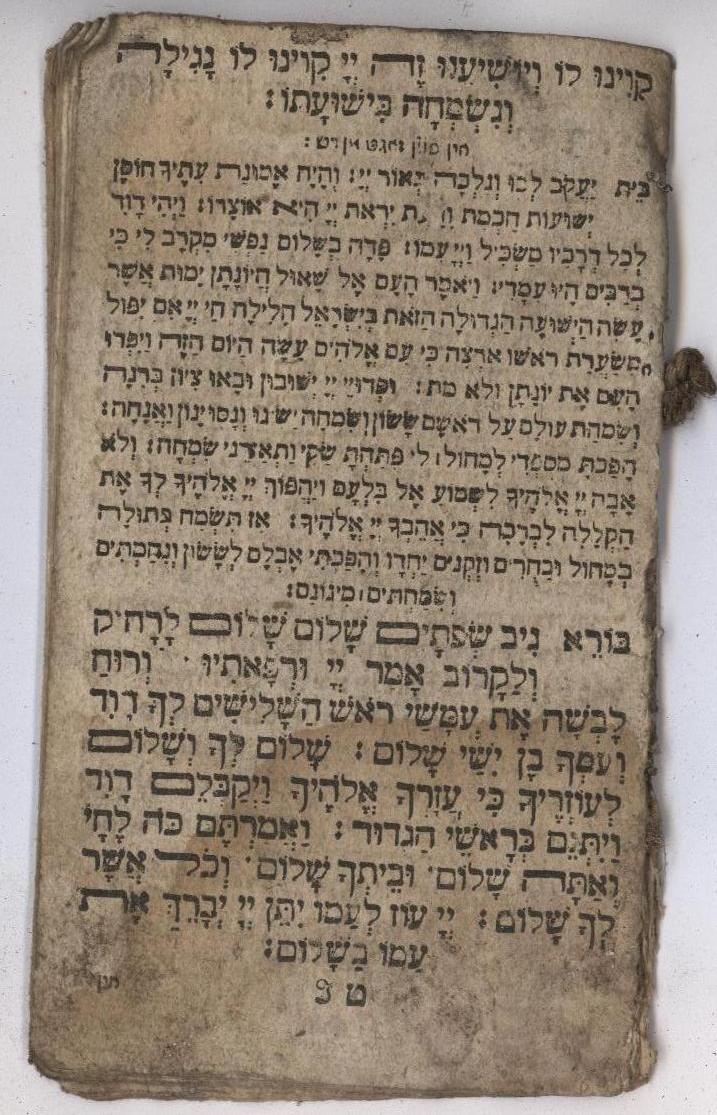 קִוִּינוּ לוֹ וְיוֹשִׁיעֵנוּ זֶה יְיָ קִוִּינוּ לוֹ נָגִילָה
וְנִשְׂמְחָה בִּישׁוּעָתוֹ:
בֵּית יַעֲקֹב לְכוּ וְנֵלְכָה בְּאוֹר יְיָ: וְהָיָה אֱמוּנַת עִתֶּיךָ חוֹסֶן
יְשׁוּעוֹת חָכְמַת יִרְאַת יְיָ הִיא אוֹצָרוֹ: וַיְהִי דָוִד
לְכָל דְּרָכָיו מַשְׂכִּיל וַיְיָ עִמּוֹ: פָּדָה בְשָׁלוֹם נַפְשִׁי מִקְּרָב לִי כִּי
בְרַבִּים הָיוּ עִמָּדִי: וַיֹּאמֶר הָעָם אֶל שָׁאוּל הֲיוֹנָתָן יָמוּת אֲשֶׁר
עָשָׂה הַיְשׁוּעָה הַגְּדוֹלָה הַזֹּאת בְּיִשְׂרָאֵל חָלִילָה חַי יְיָ אִם יִפּוֹל
מִשַּׂעֲרַת רֹאשׁוֹ אַרְצָה כִּי עִם אֱלֹהִים עָשָׂה הַיּוֹם הַזֶּה וַיִּפְדּוּ
הָעָם אֶת יוֹנָתָן וְלֹא מֵת: וּפְדוּיֵי יְיָ יְשׁוּבוּן וּבָאוּ צִיּוֹן בְּרִנָּה
וְשִׂמְחַת עוֹלָם עַל רֹאשָׁם שָׂשׂוֹן וְשִׂמְחָה יַשִּׂיגוּ וְנָסוּ יָגוֹן וַאֲנָחָה:
הָפַכְתָּ מִסְפְּדִי לְמָחוֹל לִי פִּתַּחְתָּ שַׂקִּי וַתְּאַזְּרֵנִי שִׂמְחָה: וְלֹא
אָבָה יְיָ אֱלֹהֶיךָ לִשְׁמוֹעַ אֶל בִּלְעָם וַיַּהֲפוֹךְ יְיָ אֱלֹהֶיךָ לְךָ אֶת
הַקְּלָלָה לִבְרָכָה כִּי אֲהֵבְךָ יְיָ אֱלֹהֶיךָ: אָז תִּשְׂמַח בְּתוּלָה
בְּמָחוֹל וּבַחֻרִים וּזְקֵנִים יַחְדָּו וְהָפַכְתִּי אֶבְלָם לְשָׂשׂוֹן וְנִחַמְתִּים
וְשִׂמַּחְתִּים מִיגוֹנָם:
בּוֹרֵא נִיב שְׂפָתַיִם שָׁלוֹם שָׁלוֹם לָרָחוֹק
וְלַקָּרוֹב אָמַר יְיָ וּרְפָאתִיו וְרוּחַ
לָבְשָׁה אֶת עֲמָשַׂי רֹאשׁ הַשָּׁלִישִׁים לְךָ דָוִד
וְעִמְּךָ בֶן יִשַׁי שָׁלוֹם: שָׁלוֹם לְךָ וְשָׁלוֹם
לְעוֹזְרֶיךָ כִּי עֲזָרְךָ אֱלֹהֶיךָ וַיְקַבְּלֵם דָּוִד
וַיִּתְּנֵם בְּרָאשֵׁי הַגְּדוּד: וַאֲמַרְתֶּם כֹּה לֶחָי
וְאַתָּה שָׁלוֹם וּבֵיתְךָ שָׁלוֹם וְכֹל אֲשֶׁר
לְךָ שָׁלוֹם: יְיָ עוֹז לְעַמּוֹ יִתֵּן יְיָ יְבָרֵךְ אֶת
עַמּוֹ בַשָּׁלוֹם: